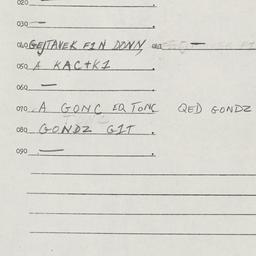 020 .
030 — .
040 GEJTAVEK F1N DONN, 041 —
050 A KAC+K1 .
060 — .
070 A GONC EQ TONC QED GONDZ
080 GONDZ G1T .
090 — .